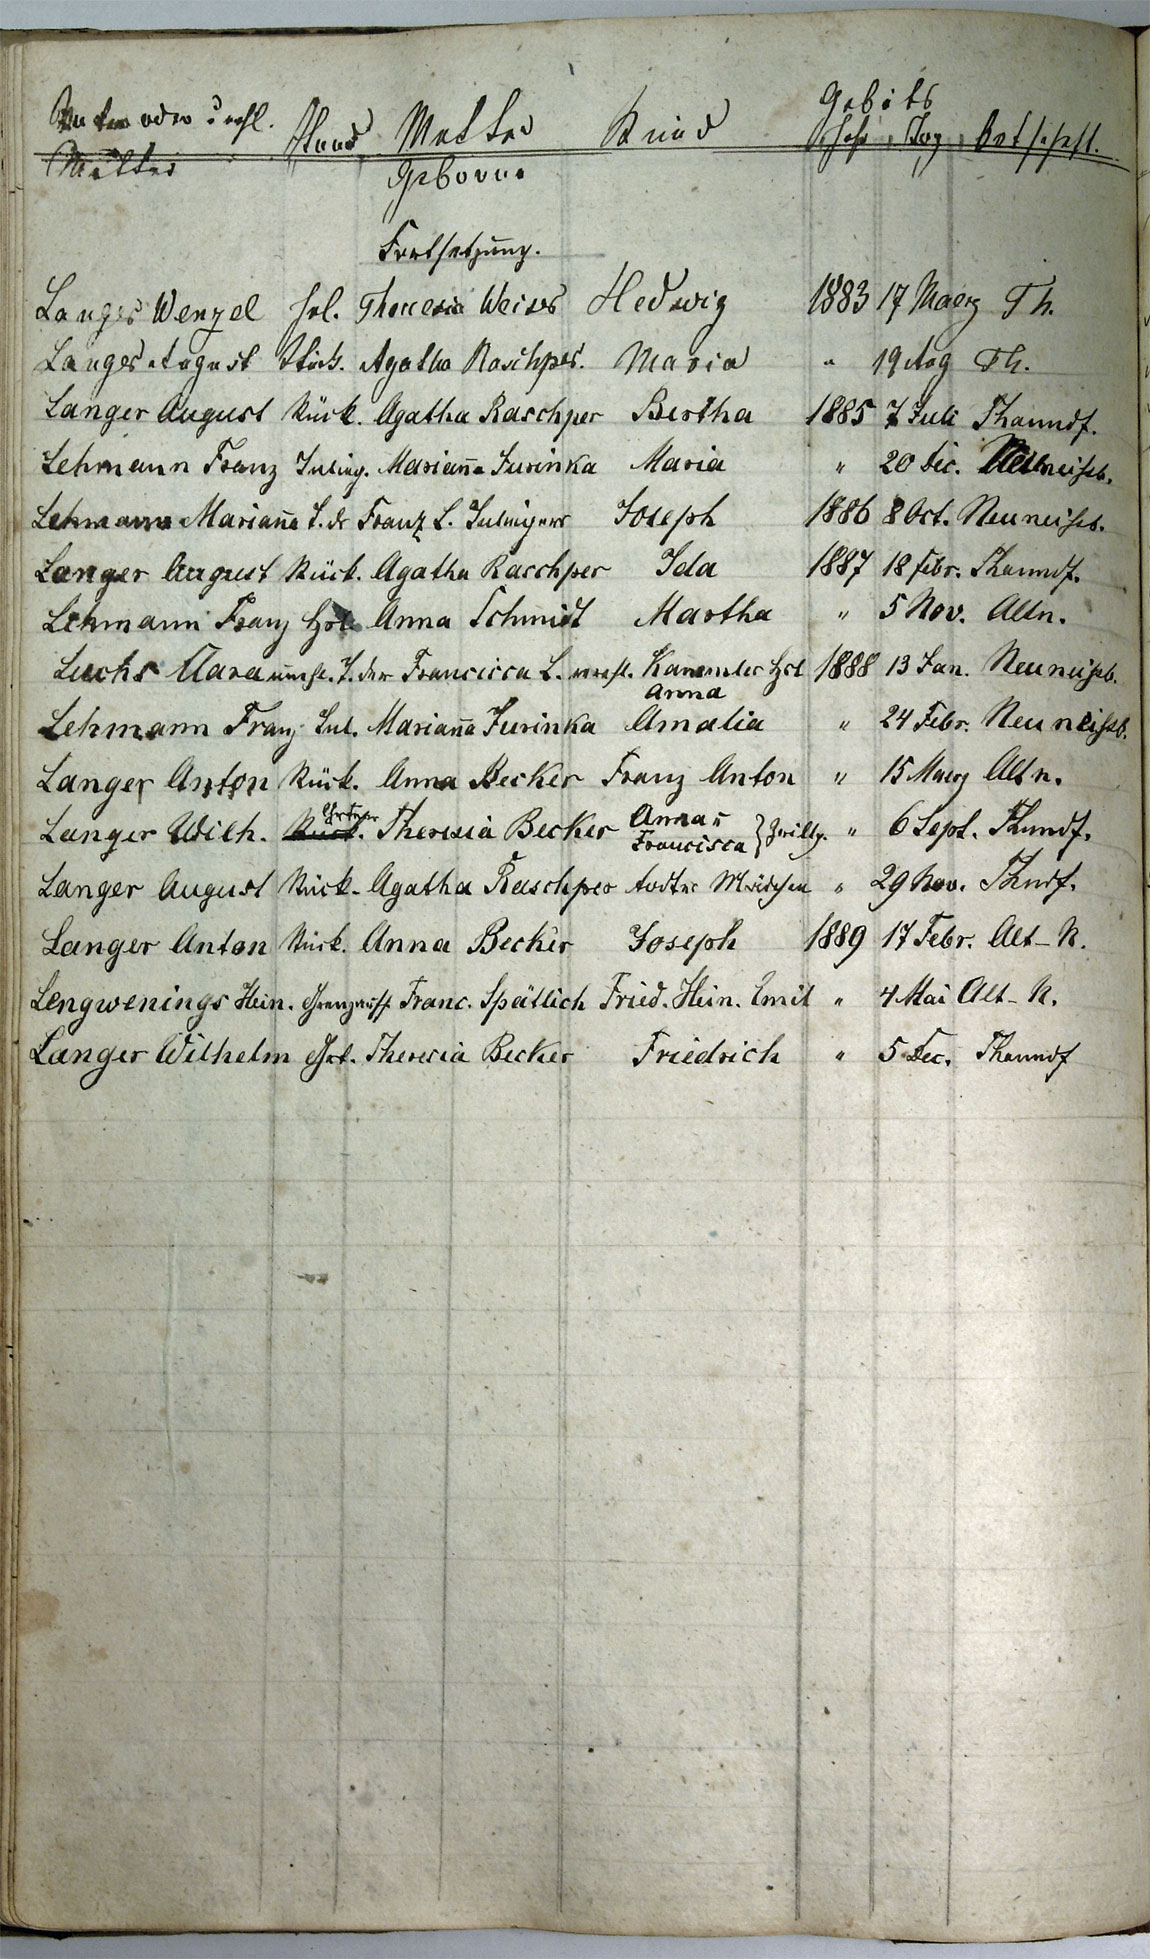 Vater oder unehl. Stand Mutter Kind Gebůts
Mutter Geborne Jahr Tag Ortschaft.
Fortsetzung.
Langer Wenzel Hsl. Theresia Weiss Hedwig 1883 17 Maerz Th.
Langer August Stück. Agatha Raschper. Maria " 19 Aug Th.
Langer August Stück. Agatha Raschper Bertha 1885 7 Juli Thanndf.
Lehmann Franz Inlieg. Mariana Jurinka Maria " 20 Dec. Neuneisb.
Lehmann Mariana T. dr Franz L. Inliegers Joseph 1886 8 Oct. Neuneisb.
Langer August Stück. Agatha Raschper Ida 1887 18 Febr. Thanndf.
Lehmann Franz Hsl. Anna Schmidt Martha " 5 Nov. Altn.
Luchs Clara unehl. T. der Francisca L. vereh. Kammler Hsl 1888 13 Jan. Neuneisb.
Anna
Lehmann Franz Inl. Mariana Jurinka Amalia " 24 Febr. Neuneisb.
Langer Anton Stück. Anna Becker Franz Anton " 15 Maerz Altn.
Langer Wilh. Stück. Gärtner Theresia Becker Anna u Francisca } Zwillg. " 6 Sept. Thndf.
Langer August Stück. Agatha Raschper todtes Mädchen " 29 Nov. Thndf.
Langer Anton Stück. Anna Becker Joseph 1889 17 Febr. Alt-N.
Lengwenings Hein. Grenzauff Franc. Spätlich Fried. Hein. Emil " 4 Mai Alt-N.
Langer Wilhelm Grt. Theresia Becker Friedrich " 5 Dec. Thanndf